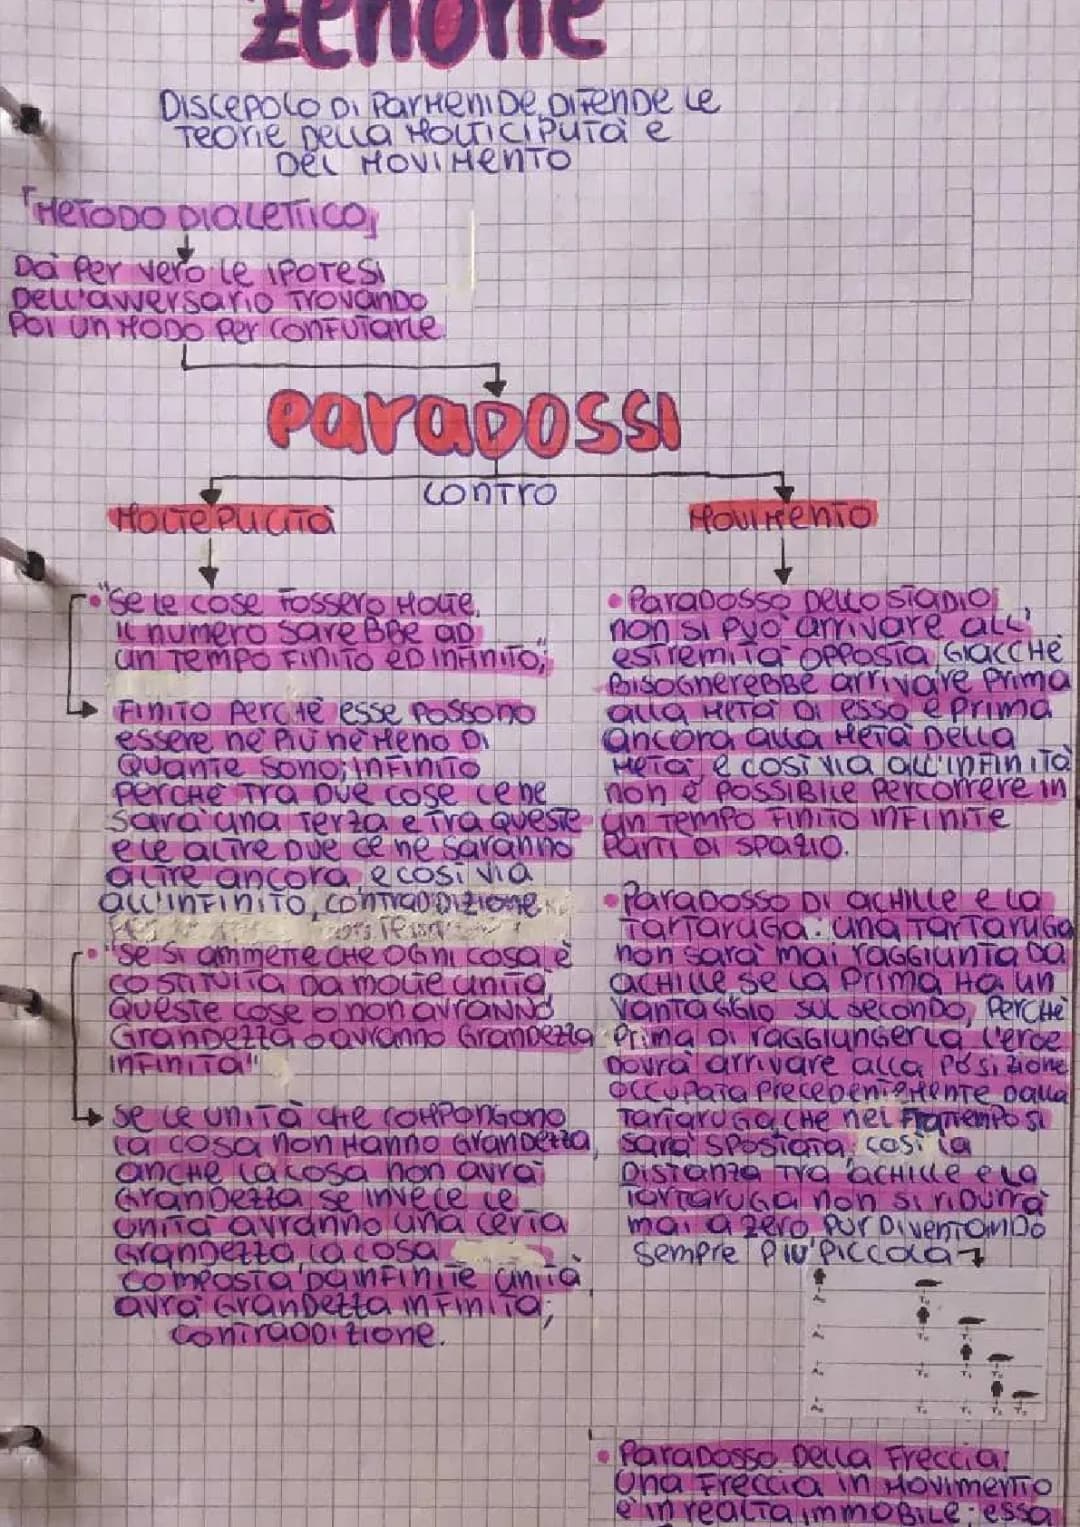 Zenone
DISCEPOLO DI PARMENIDE DIFENDE LE
TEORIE DELLA MOLTICIPLITÀ E
DEL MOVIMENTO
METODO DIALETTICO
DÀ PER VERO LE IPOTESI
DELL'AVVERSARIO TROVANDO
POI UN MODO PER CONFUTARLE
PARADOSSI
CONTRO
MOLTEPLICITÀ
MOVIMENTO
• "SE LE COSE FOSSERO MOLTE,
IL NUMERO SAREBBE AD
UN TEMPO FINITO ED INFINITO;"
FINITO PERCHÉ ESSE POSSONO
ESSERE NÉ PIÙ NÉ MENO DI
QUANTE SONO; INFINITO
PERCHÉ TRA DUE COSE CE NE
SARÀ UNA TERZA E TRA QUESTE
E LE ALTRE DUE CE NE SARANNO
ALTRE ANCORA, E COSÌ VIA
ALL'INFINITO, CONTRADDIZIONE
• "SE SI AMMETTE CHE OGNI COSA È
COSTITUITA DA MOLTE UNITÀ
QUESTE COSE O NON AVRANNO
GRANDEZZA O AVRANNO GRANDEZZA
INFINITA"
SE LE UNITÀ CHE COMPONGONO
LA COSA NON HANNO GRANDEZZA,
ANCHE LA COSA NON AVRÀ
GRANDEZZA SE INVECE LE
UNITÀ AVRANNO UNA CERTA
GRANDEZZA, LA COSA
COMPOSTA DA INFINITE UNITÀ,
AVRÀ GRANDEZZA INFINITA;
CONTRADDIZIONE.
• PARADOSSO DELLO STADIO:
NON SI PUÒ ARRIVARE ALL'
ESTREMITÀ OPPOSTA, GIACCHÉ
BISOGNEREBBE ARRIVARE PRIMA
ALLA METÀ DI ESSO E PRIMA
ANCORA ALLA METÀ DELLA
METÀ, E COSÌ VIA ALL'INFINITÀ
NON È POSSIBILE PERCORRERE IN
UN TEMPO FINITO INFINITE
PARTI DI SPAZIO.
• PARADOSSO DI ACHILLE E LA
TARTARUGA: UNA TARTARUGA
NON SARÀ MAI RAGGIUNTA DA
ACHILLE SE LA PRIMA HA UN
VANTAGGIO SUL SECONDO, PERCHÉ
PRIMA DI RAGGIUNGERLA L'EROE
DOVRÀ ARRIVARE ALLA POSIZIONE
OCCUPATA PRECEDENTEMENTE DALLA
TARTARUGA CHE NEL FRATTEMPO SI
SARÀ SPOSTATA; COSÌ LA
DISTANZA TRA ACHILLE E LA
TARTARUGA NON SI RIDURRÀ
MAI A ZERO, PUR DIVENTANDO
SEMPRE PIÙ PICCOLA
• PARADOSSO DELLA FRECCIA:
UNA FRECCIA IN MOVIMENTO
È IN REALTÀ IMMOBILE: ESSA